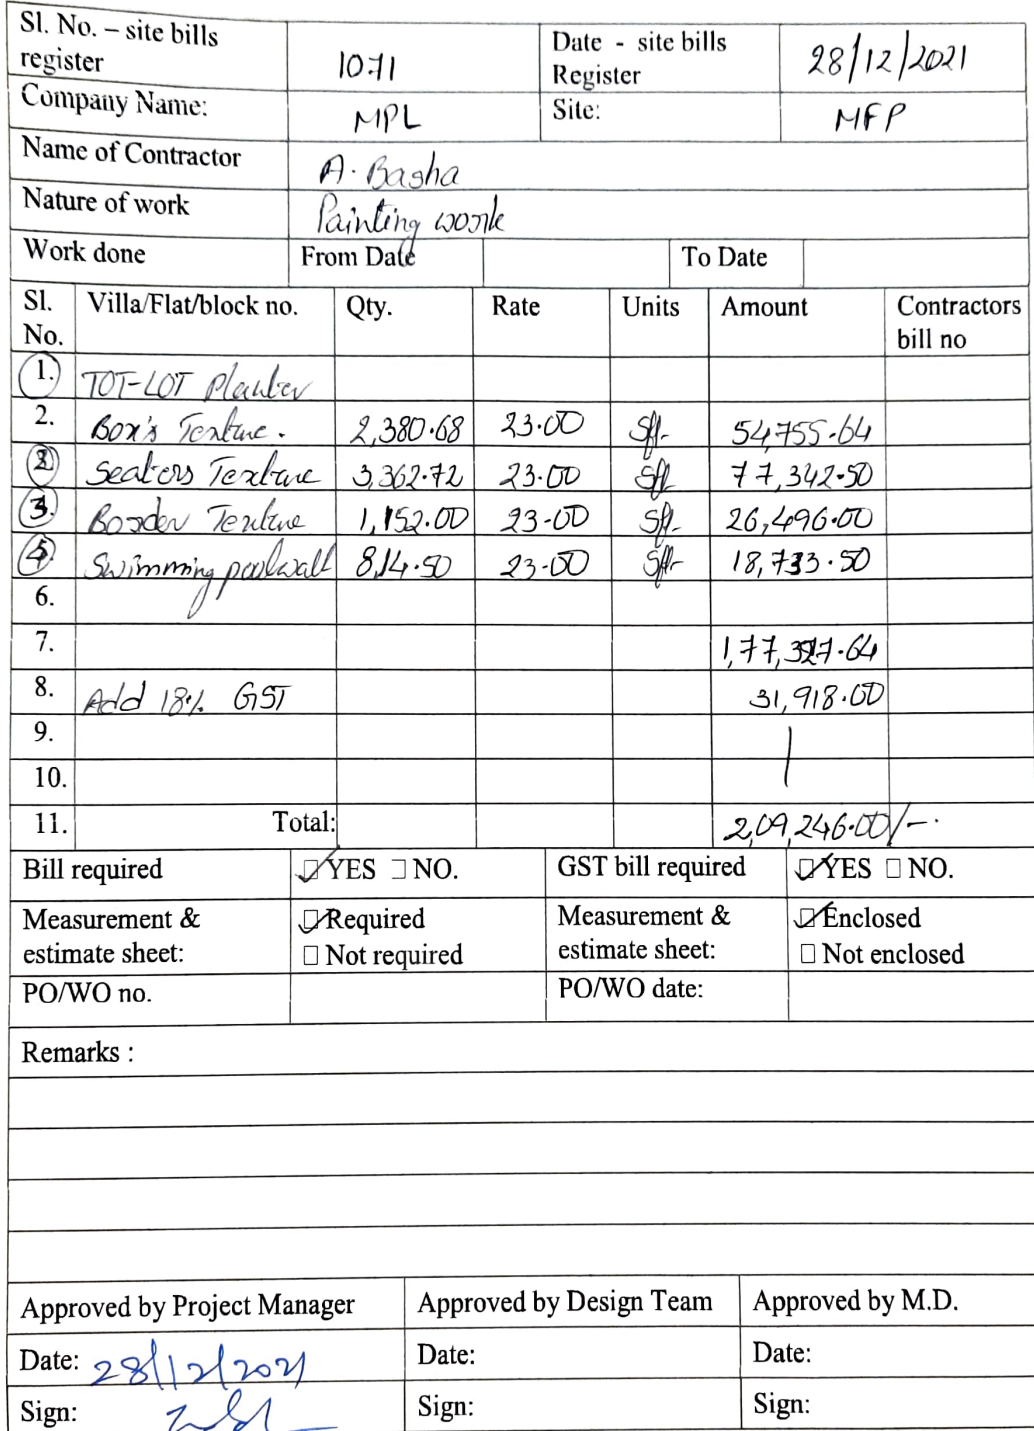 Sl. No. – site bills register 1071 Date - site bills Register 28/12/2021
Company Name: MPL Site: MFP
Name of Contractor A. Basha
Nature of work Painting work
Work done From Date To Date
Sl. No. Villa/Flat/block no. Qty. Rate Units Amount Contractors bill no
1. TOT-LOT Planter
2. Box's Texture. 2,380.68 23.00 Sft. 54,755.64
2 Seaters Texture 3,362.72 23.00 Sft 77,342.50
3. Border Texture 1,152.00 23-00 Sft. 26,496.00
Swimming poolwall 814.50 23-00 Sft 18,733.50
6.
7. 1,77,327.64
8. Add 18% GST 31,918.00
9.
10.
11. Total: 2,09,246.00/-.
Bill required YES NO. GST bill required YES NO.
Measurement & estimate sheet: Required Not required Measurement & estimate sheet: Enclosed Not enclosed
PO/WO no. PO/WO date:
Remarks :
Approved by Project Manager Approved by Design Team Approved by M.D.
Date: 28/12/2021 Date: Date:
Sign: Sign: Sign: